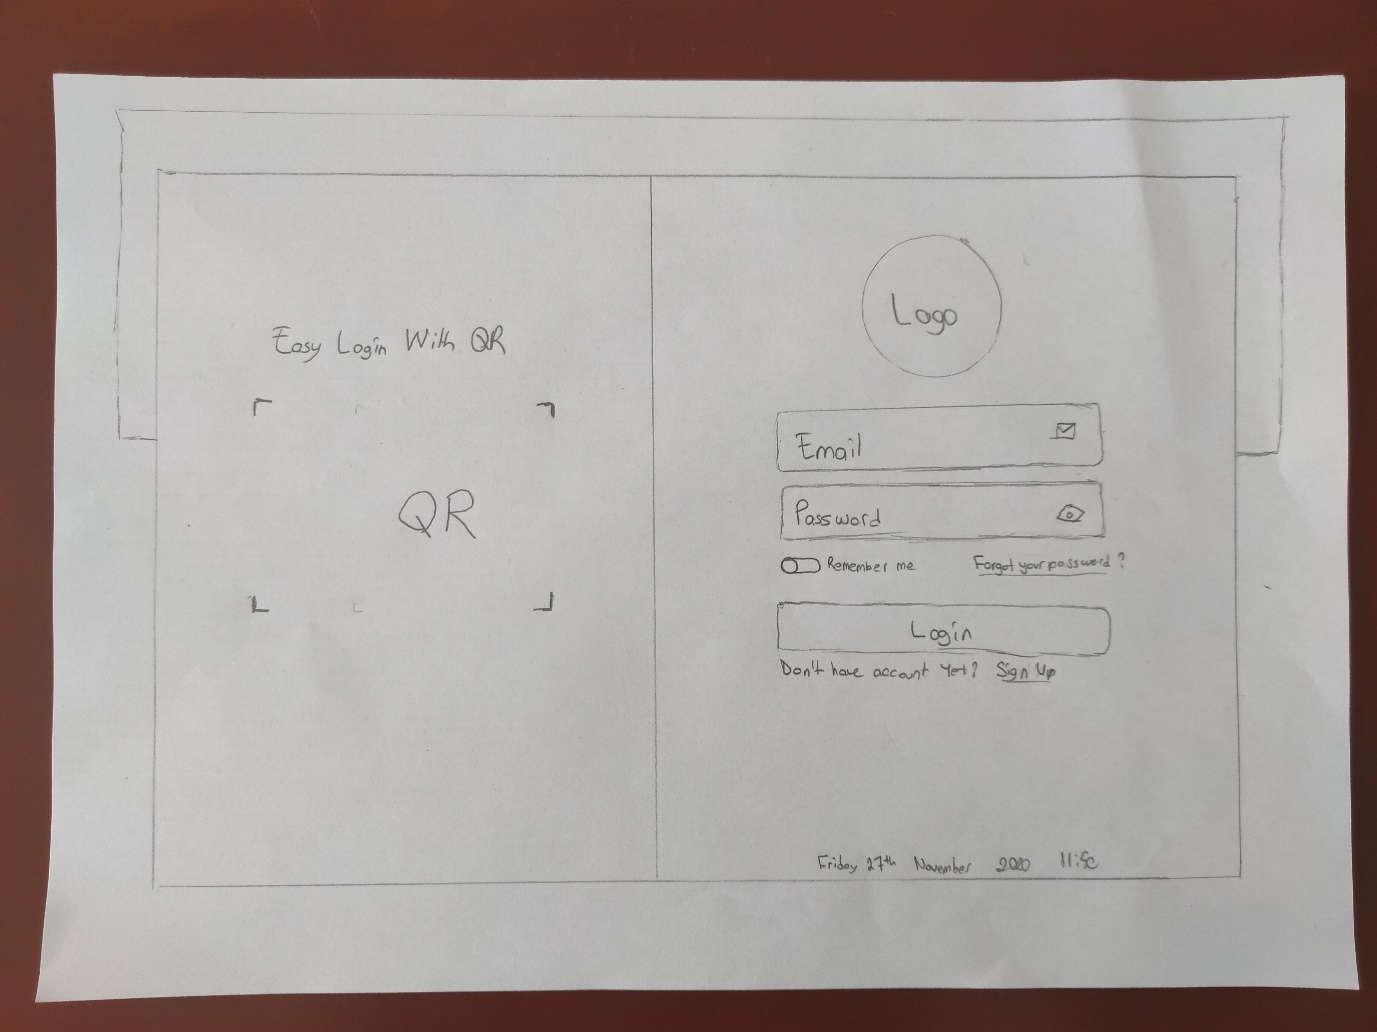 Easy Login With QR
QR
Logo
Email
Password
Remember me
Forgot your password?
Login
Don't have account Yet? Sign Up
Friday 27th November 2020